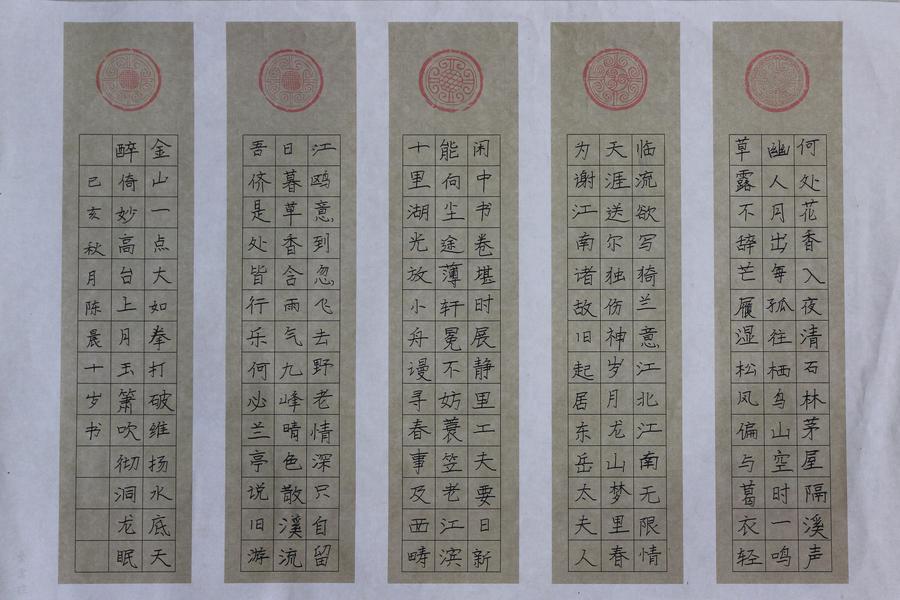 何处花香入夜清石林茅屋隔溪声
幽人月出每孤往栖鸟山空时一鸣
草露不辞芒屦湿松风偏与葛衣轻
临流欲写猗兰意江北江南无限情
天涯送尔独伤神岁月龙山梦里春
为谢江南诸故旧起居东岳太夫人
闲中书卷堪时展静里工夫要日新
能向尘途薄轩冕不妨蓑笠老江滨
十里湖光放小舟谩寻春事及西畴
江鸥意到忽飞去野老情深只自留
日暮草香含雨气九峰晴色散溪流
吾侪是处皆行乐何必兰亭说旧游
金山一点大如拳打破维扬水底天
醉倚妙高台上月玉箫吹彻洞龙眠
己亥秋月陈晨十岁书